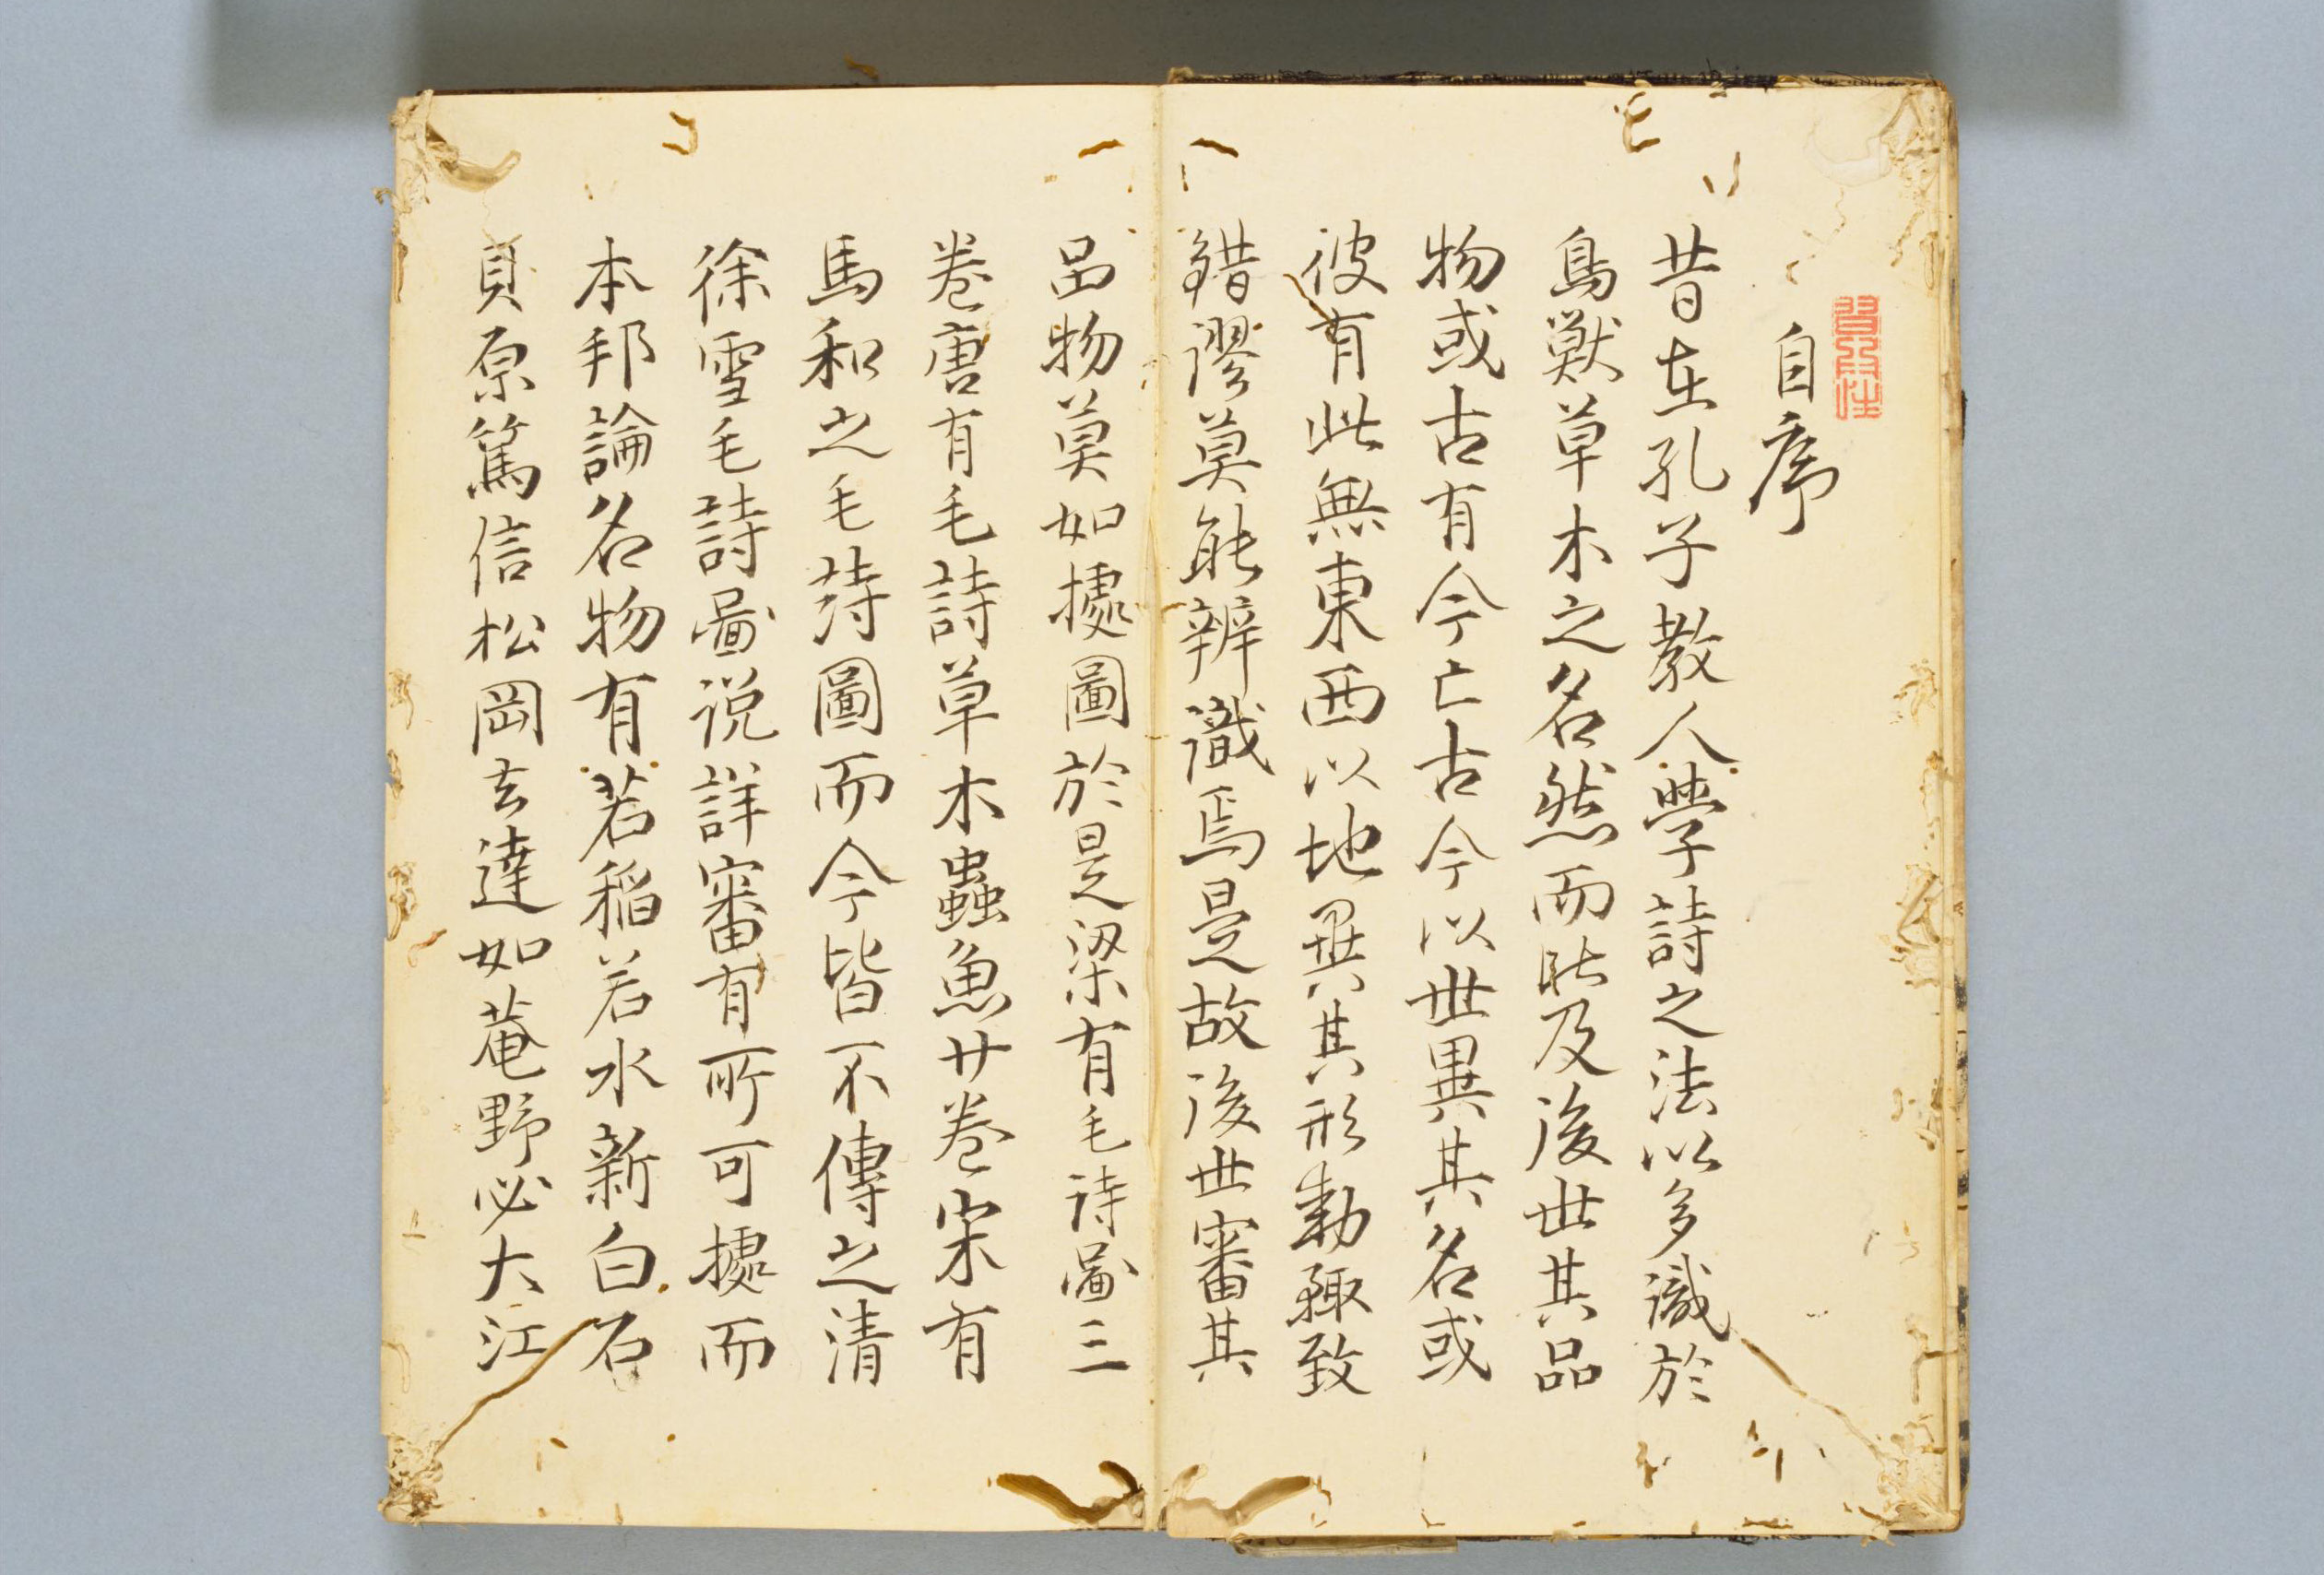 自序
昔在孔子教人學詩之法以多識於
鳥獸草木之名然而時及後世其品
物或古有今亡古今以世異其名或
彼有此無東西以地異其形動輙致
錯謬莫能辨識焉是故後世審其
品物莫如據圖於是梁有毛詩圖三
卷唐有毛詩草木蟲魚廿卷宋有
馬和之毛詩圖而今皆不傳之清
徐雪毛詩啚説詳審有所可據而
本邦論名物有若稲若水新白石
貝原篤信松岡玄達如菴野必大江